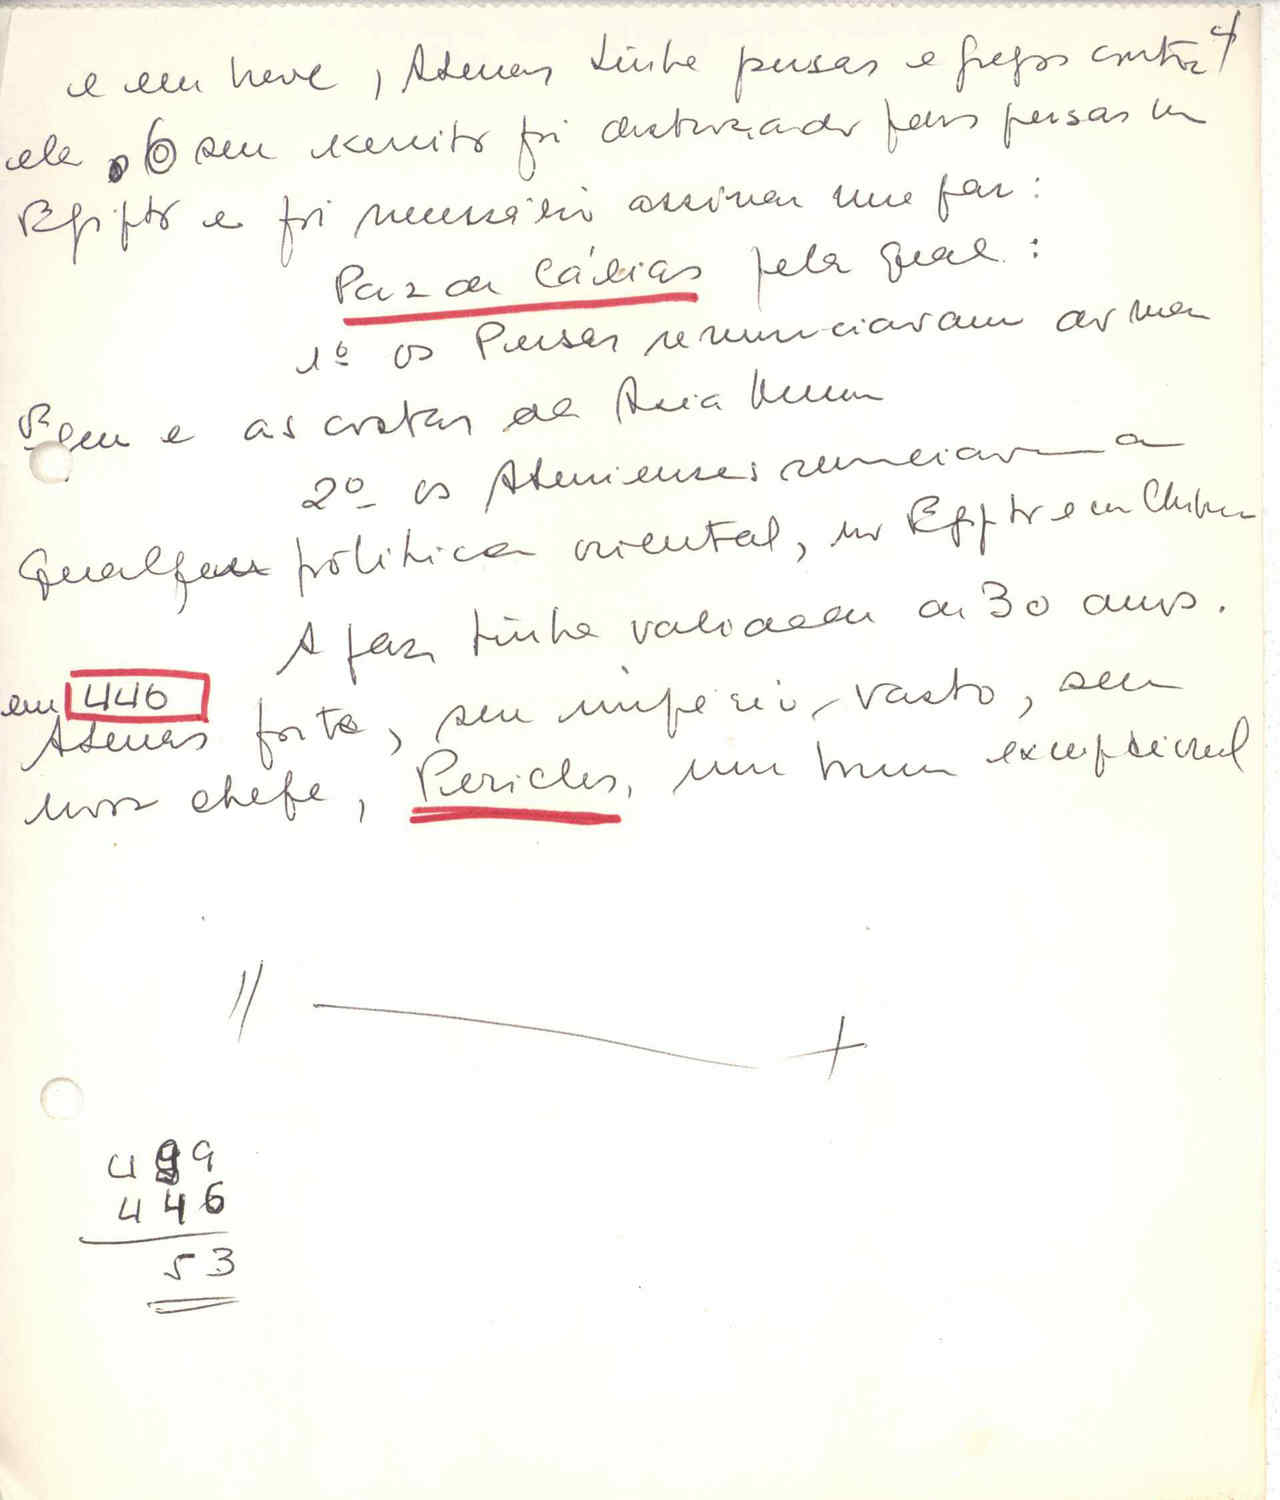 4
e em breve, Atenas tinha persas e gregos contra
ela. O seu exercito foi destroçado pelos persas no
Egipto e foi necessário assinar uma paz:
Paz de Cálias pela qual:
1º os Persas renunciavam ao mar
Egeu e as costas da Asia Menor
2º os Atenienses renunciavam a
qualquer politica oriental, no Egipto e em Chipre
A paz tinha validade de 30 anos.
em 446
Atenas forte, seu império vasto, seu
novo chefe, Pericles, um homem excepcional
499
446
53